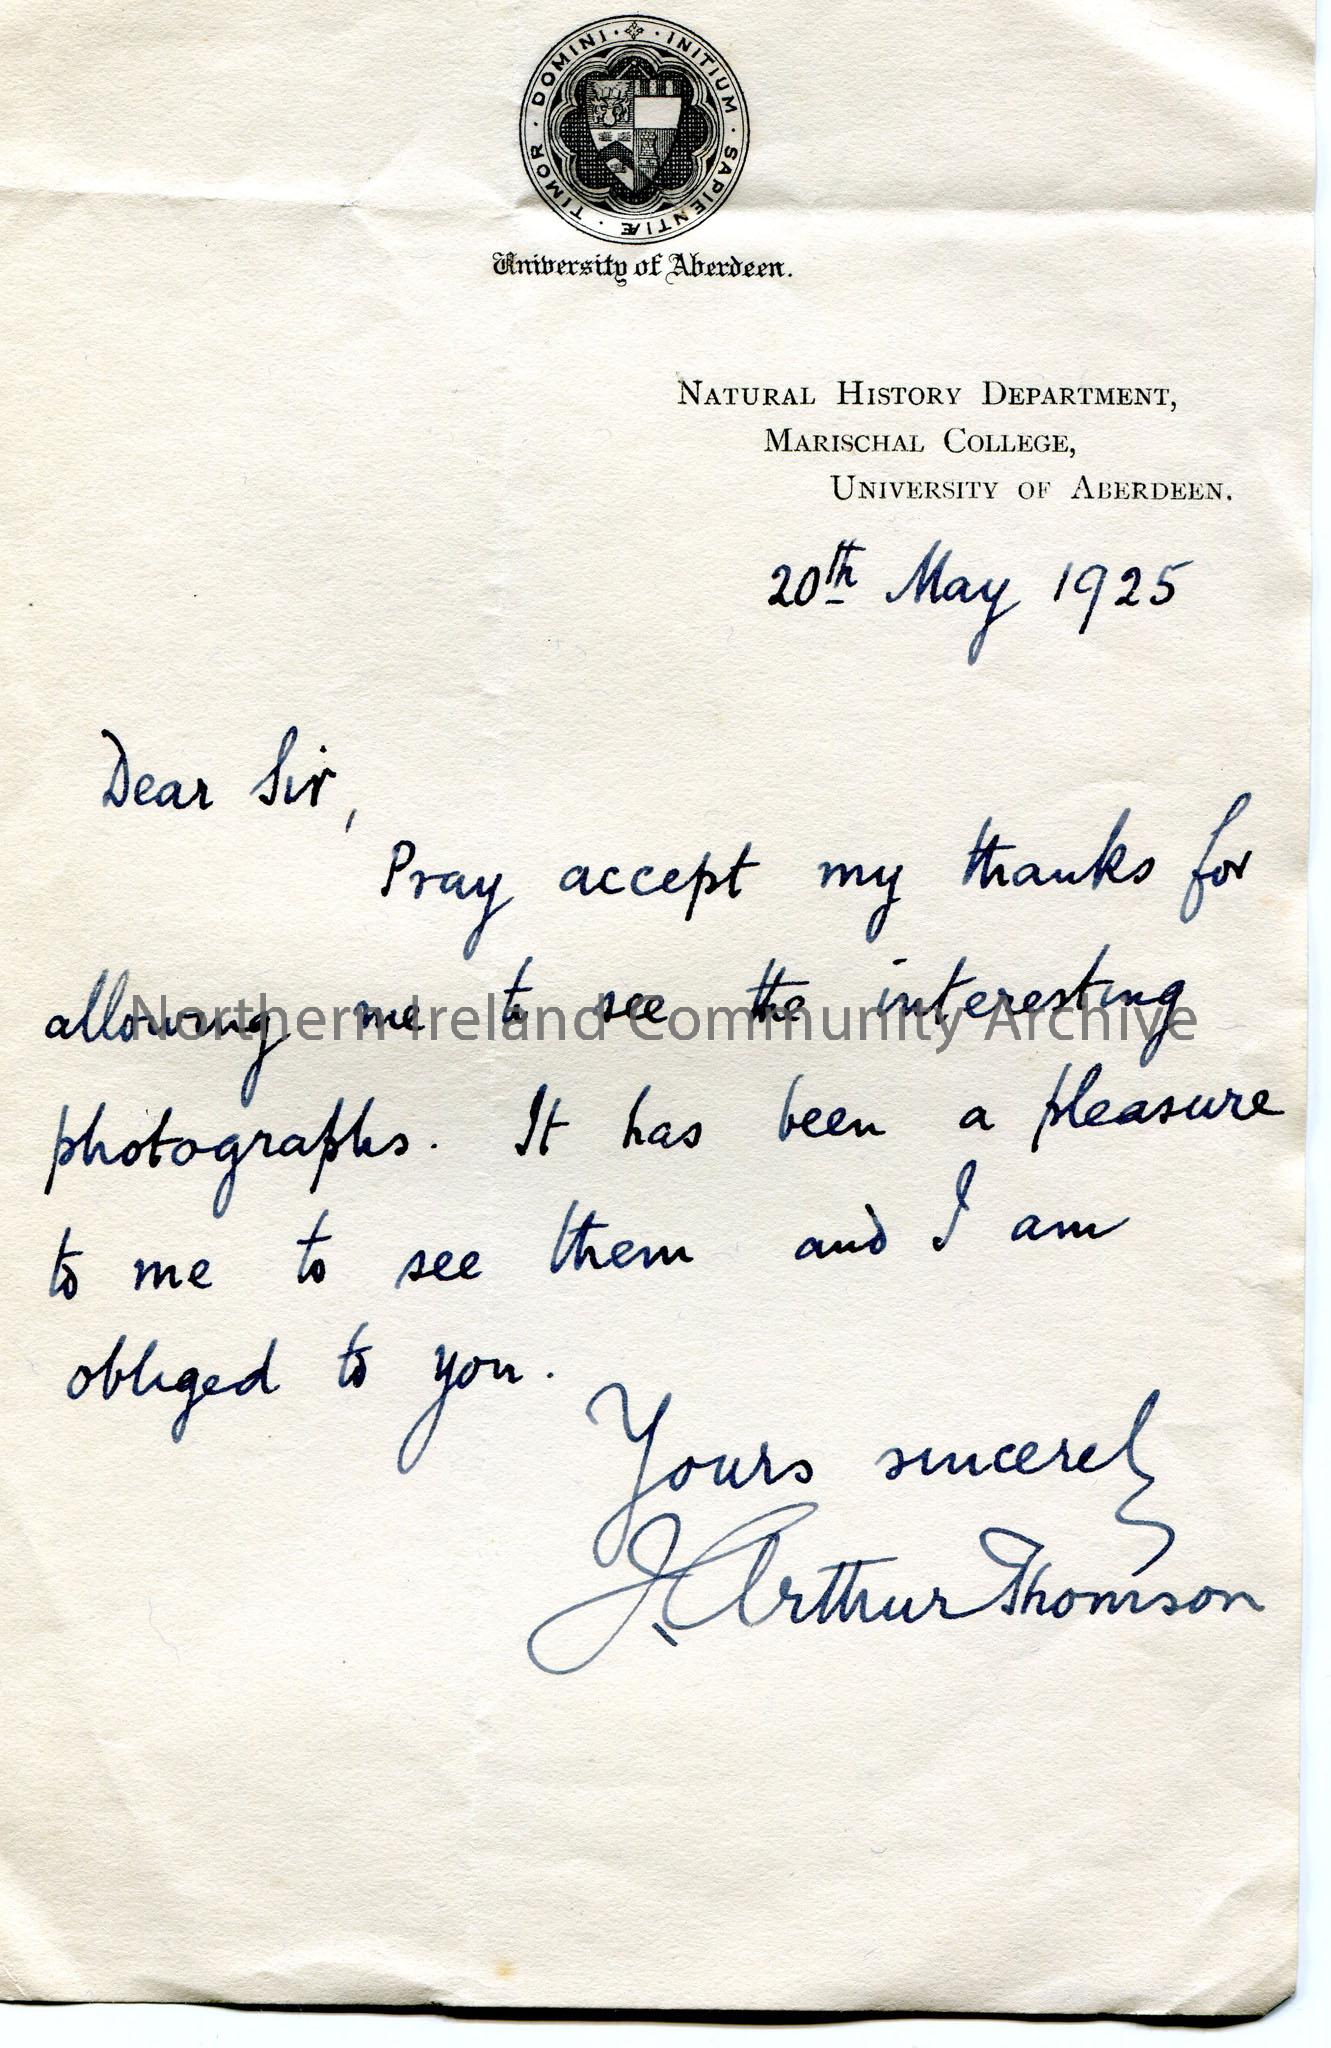 INITIUM · SAPIENTIÆ · TIMOR · DOMINI ·
University of Aberdeen.
NATURAL HISTORY DEPARTMENT,
MARISCHAL COLLEGE,
UNIVERSITY OF ABERDEEN.
20th May 1925
Dear Sir,
Pray accept my thanks for
allowing me to see the interesting
Northern Ireland Community Archive
photographs. It has been a pleasure
to me to see them and I am
obliged to you.
Yours sincerely
J. Arthur Thomson